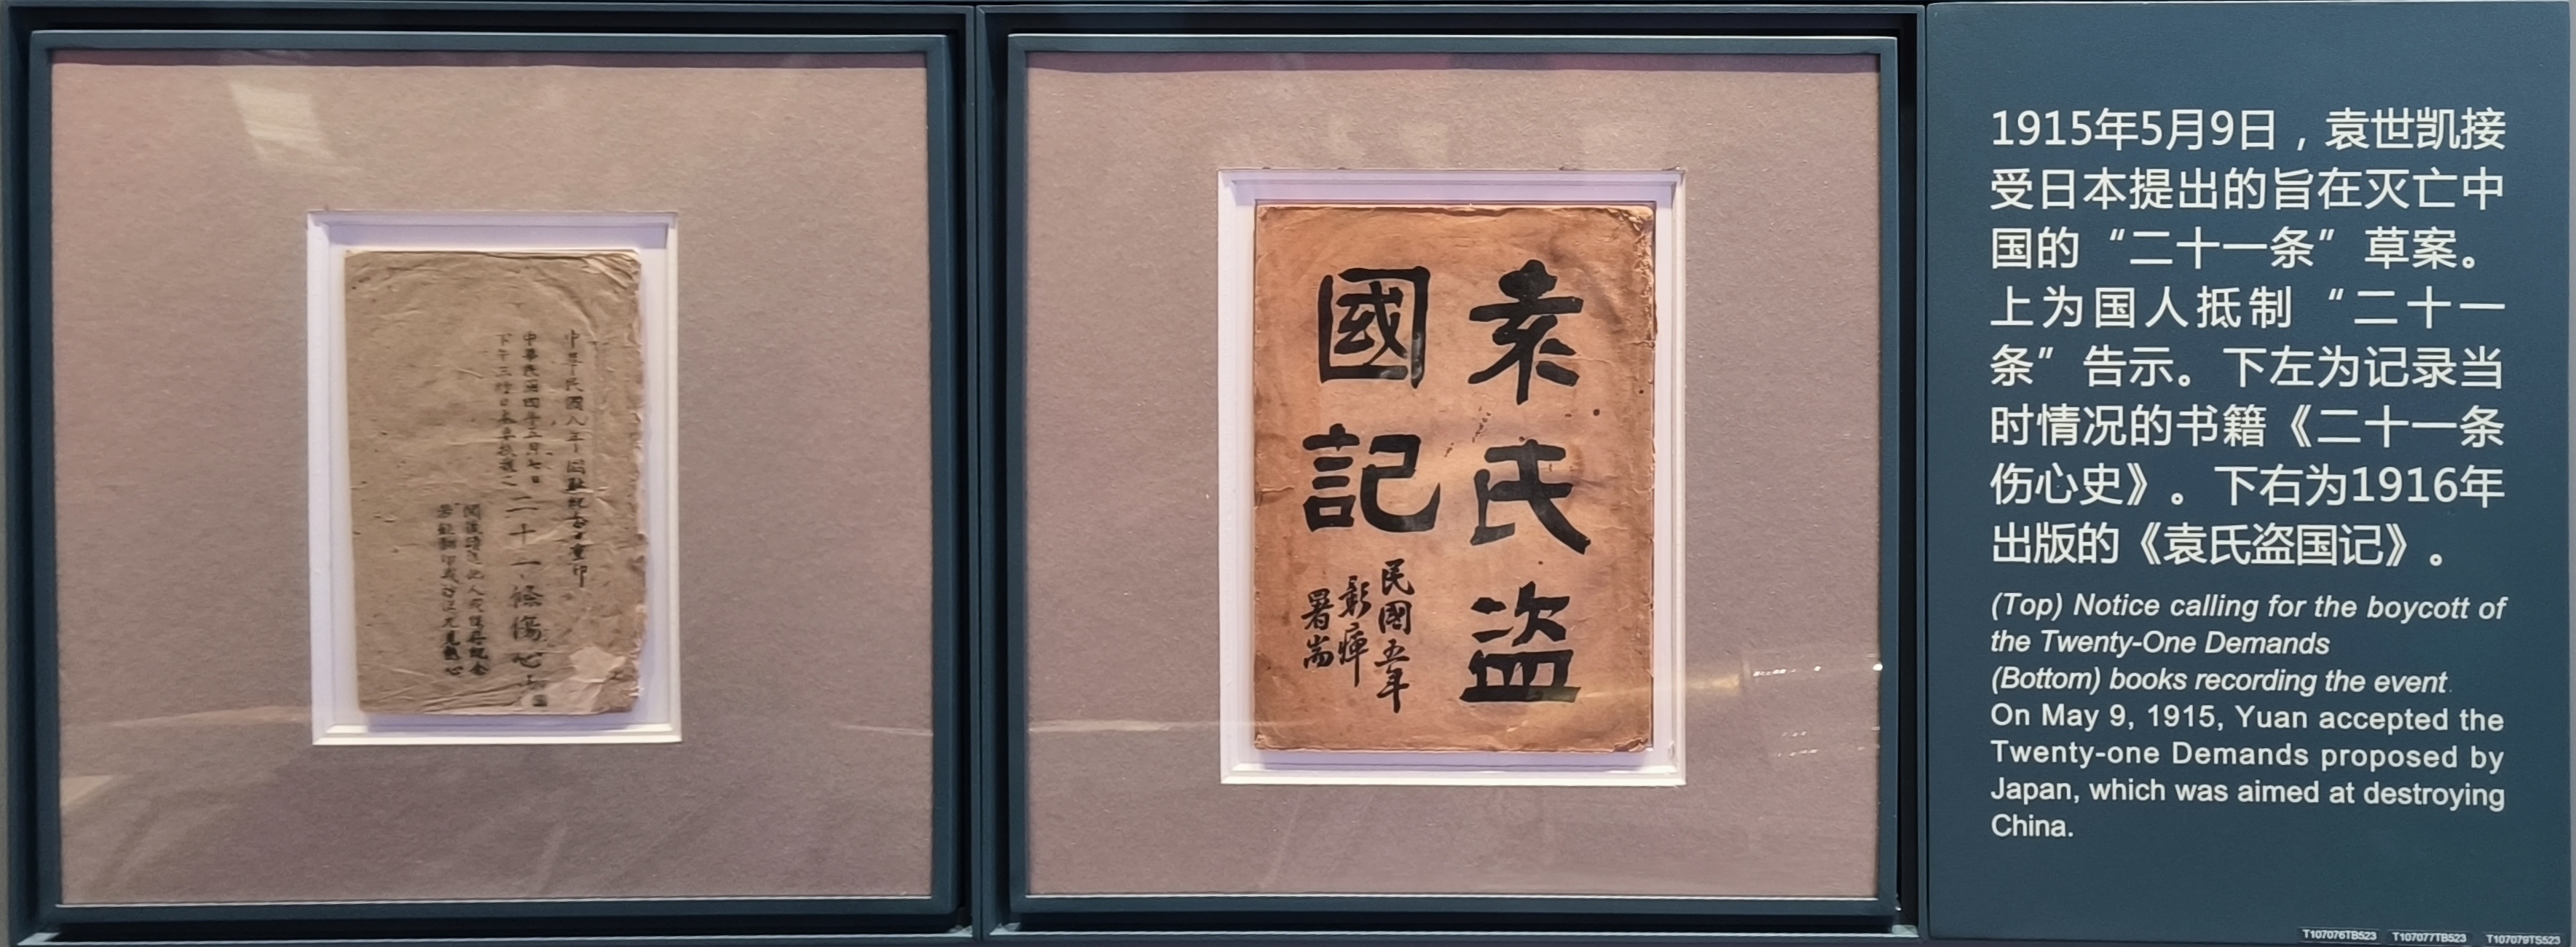 中華民國八年國恥紀念日重印
中華民國四年五月七日
下午三鐘日本要挾我之
二十一條傷心史
袁氏盜
國記
民國五年
彭
署耑
1915年5月9日，袁世凯接
受日本提出的旨在灭亡中
国的“二十一条”草案。
上为国人抵制“二十一
条”告示。下左为记录当
时情况的书籍《二十一条
伤心史》。下右为1916年
出版的《袁氏盗国记》。
(Top) Notice calling for the boycott of
the Twenty-One Demands
(Bottom) books recording the event.
On May 9, 1915, Yuan accepted the
Twenty-one Demands proposed by
Japan, which was aimed at destroying
China.
T107076TB523
T107077TB523
T107079TS523